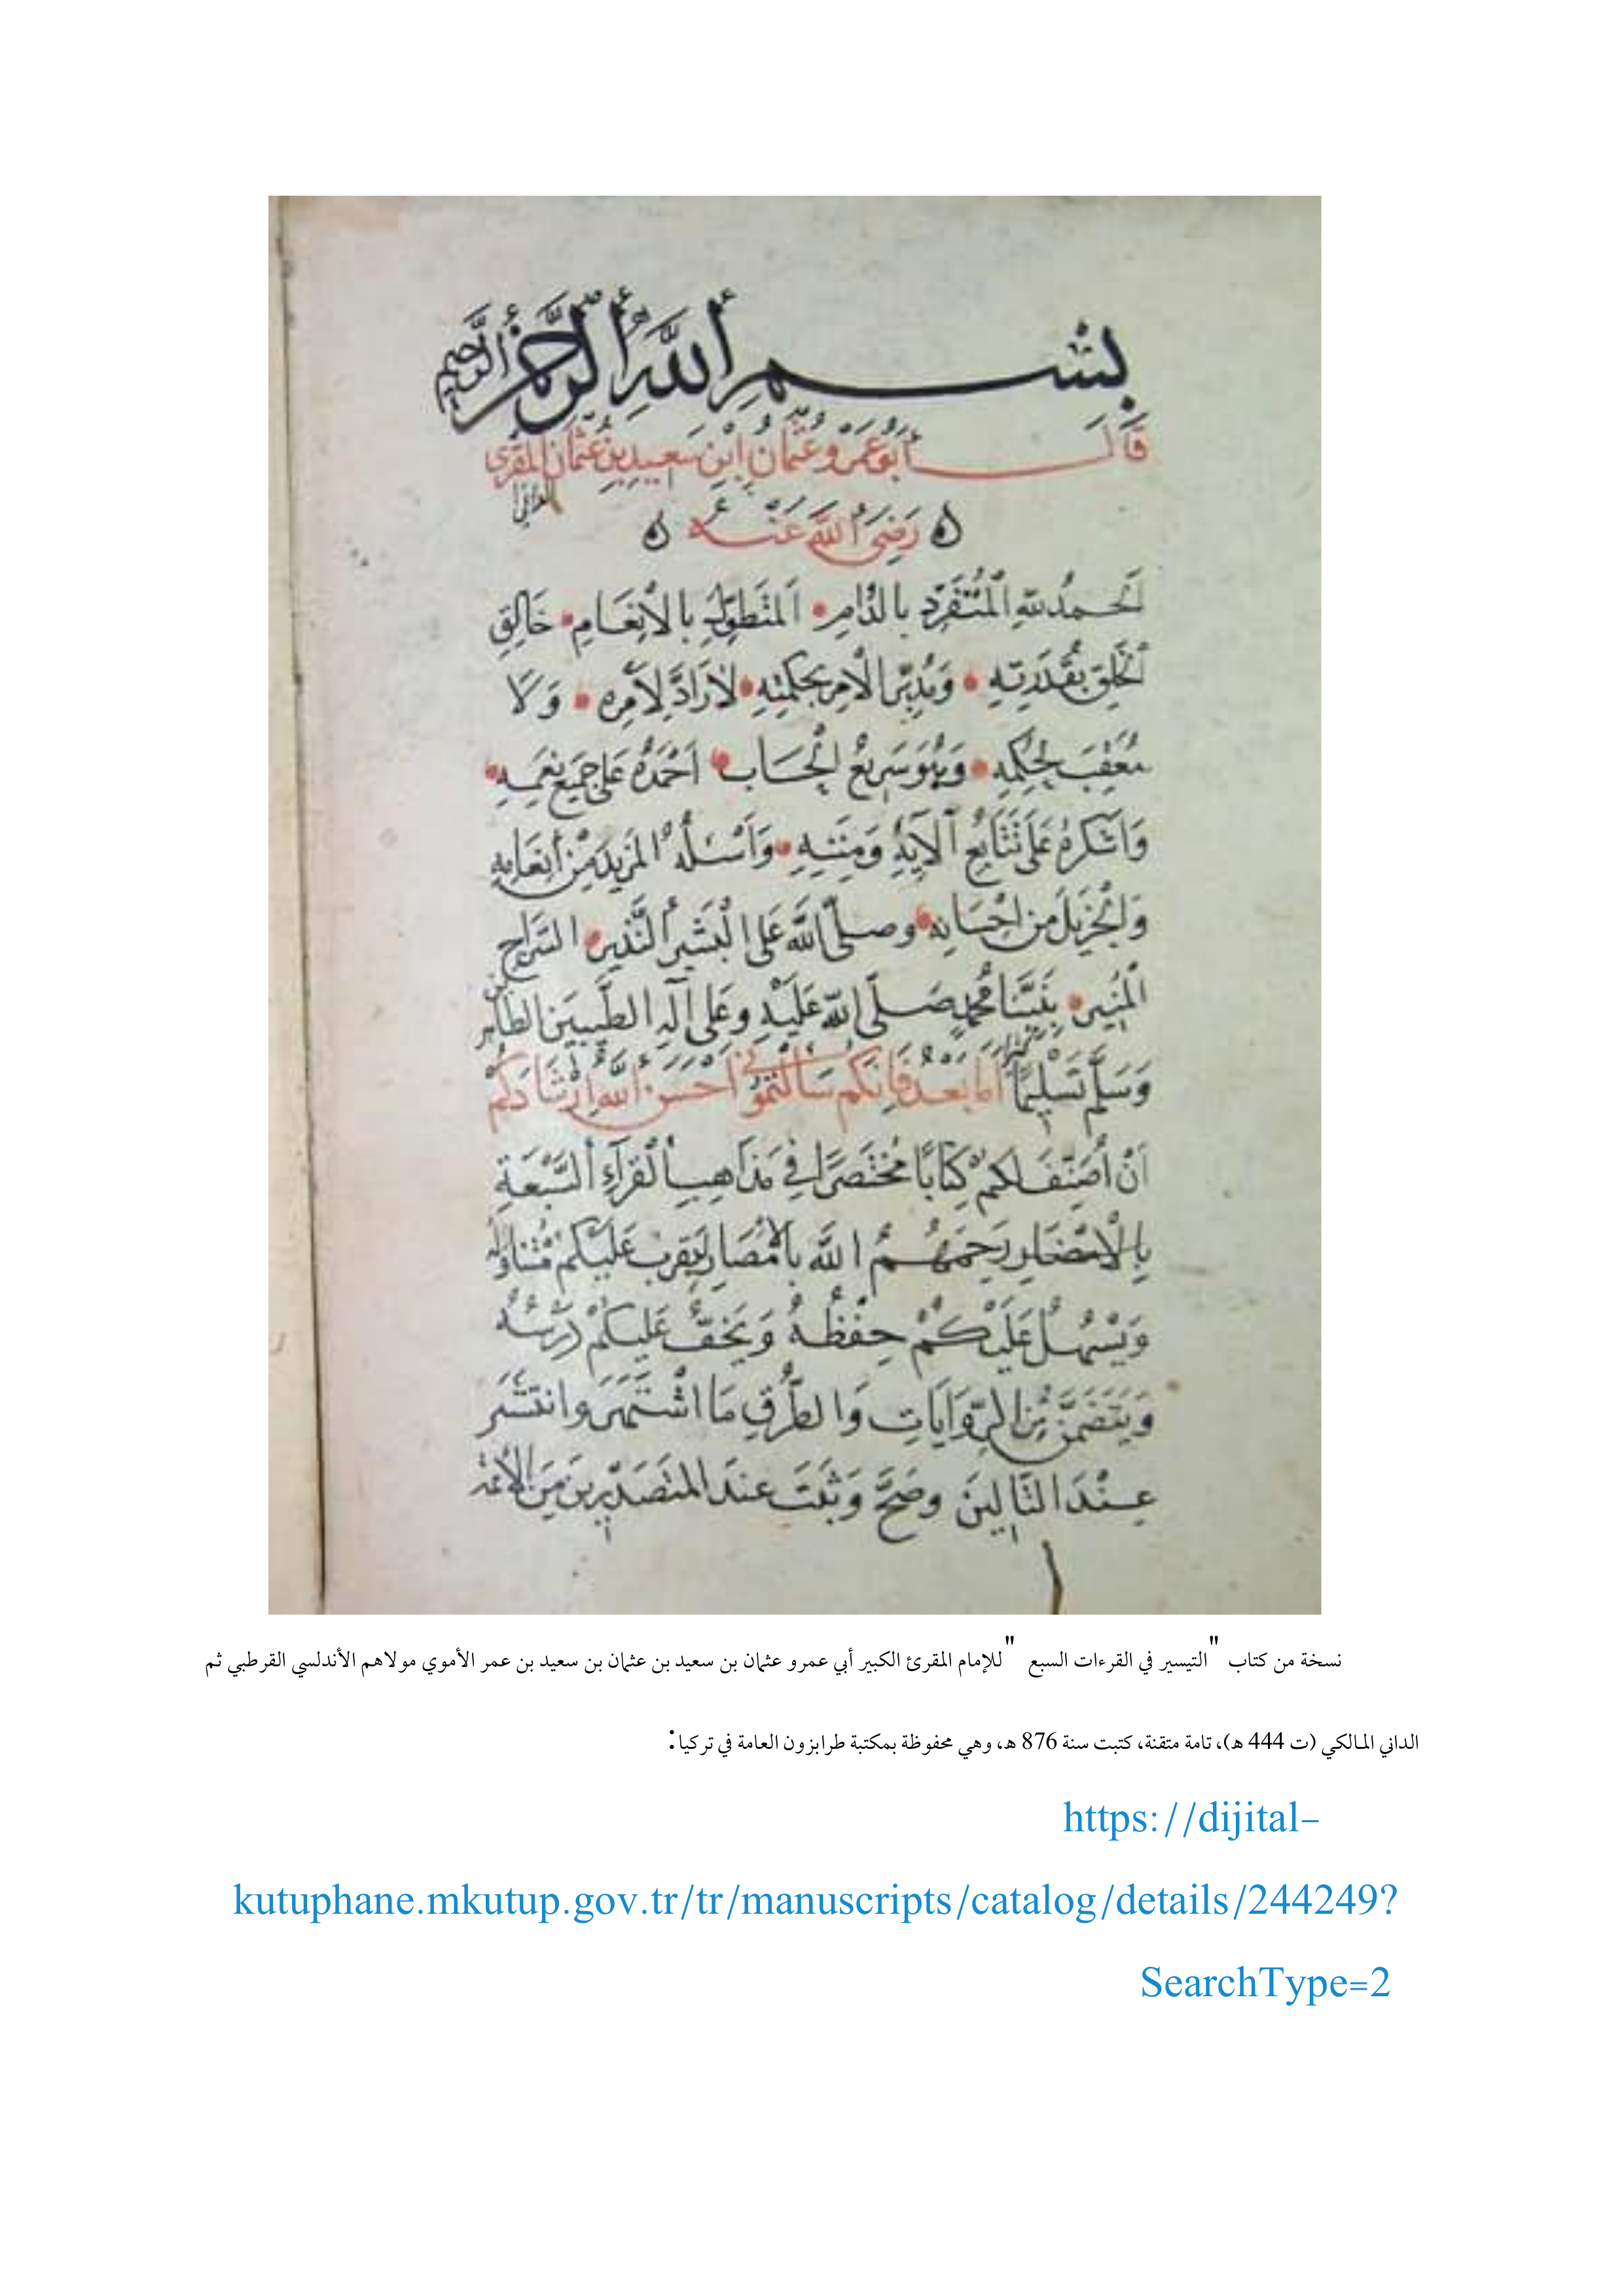 بِسْمِ اللَّهِ الرَّحْمَنِ الرَّحِيمِ
قَالَ أَبُو عَمْرٍو عُثْمَانُ ابْنُ سَعِيدِ بْنِ عُثْمَانَ الْمُقْرِي
الداني
رَضِيَ اللَّهُ عَنْهُ
اَلْحَمْدُ لِلَّهِ الْمُتَفَرِّدِ بالدَّوامِ اَلْمُتَطَوِّلِ بِالْإِنْعَامِ خَالِقِ
الْخَلْقِ بِقُدْرَتِهِ وَمُدَبِّرِ الْأَمْرِ بِحِكْمَتِهِ لَا رَادَّ لِأَمْرِهِ وَلَا
مُعَقِّبَ لِحُكْمِهِ وَهُوَ سَرِيعُ الْحِسَابِ اَحْمَدُهُ عَلَى جَمِيعِ نِعَمِهِ
وَاَشْكُرُهُ عَلَى تَتَابُعِ آلَايِهِ وَمِنَنِهِ وَاَسْئَلُهُ الْمَزِيدَ مِنْ أَنْعَامِهِ
وَالْجَزِيلَ مِنْ اِحْسَانِهِ وصلَّى اللَّهُ عَلَى الْبَشِيرِ النَّذِيرِ السِّرَاجِ
الْمُنِيرِ نَبِيِّنَا مُحَمَّدٍ صَلَّى اللَّهُ عَلَيْهِ وَعَلَى آلِهِ الطَّيِّبِينَ الطاهرين
وَسَلَّمَ تَسْلِيمًا كثيرا أَمَّا بَعْدُ فَإِنَّكُمْ سَأَلْتُمُونِي أَحْسَنَ اللَّهُ إِرْشَادَكُمْ
اَنْ أُصَنِّفَ لَكُمْ كِتَابًا مُخْتَصَرًا فِي مَذَاهِبِ الْقُرَّاءِ السَّبْعَةِ
بِالْأَمْصَارِ رَحِمَهُمُ اللَّهُ بالأمْصَارِ لِيَقْرُبَ عَلَيْكُمْ مُتَنَاوَلُهُ
وَيَسْهُلُ عَلَيْكُمْ حِفْظُهُ وَيَخِفُّ عَلَيْكُمْ دَرْسُهُ
وَيَتَضَمَّنُ مِنَ الرِّوَايَاتِ وَالطُّرُقِ مَا اشْتَهَرَ وانتَشَرَ
عِنْدَ التَّالِينَ وصَحَّ وَثَبَتَ عِنْدَ الْمُتَصَدِّرِينَ مِنَ الْأَئِمَّةِ
نسخة من كتاب "التيسير في القرءات السبع "للإمام المقرئ الكبير أبي عمرو عثمان بن سعيد بن عثمان بن سعيد بن عمر الأموي مولاهم الأندلسي القرطبي ثم
الداني المالكي (ت 444 هـ)، تامة متقنة، كتبت سنة 876 هـ، وهي محفوظة بمكتبة طرابزون العامة في تركيا:
https://dijital-
kutuphane.mkutup.gov.tr/tr/manuscripts/catalog/details/244249?
SearchType=2